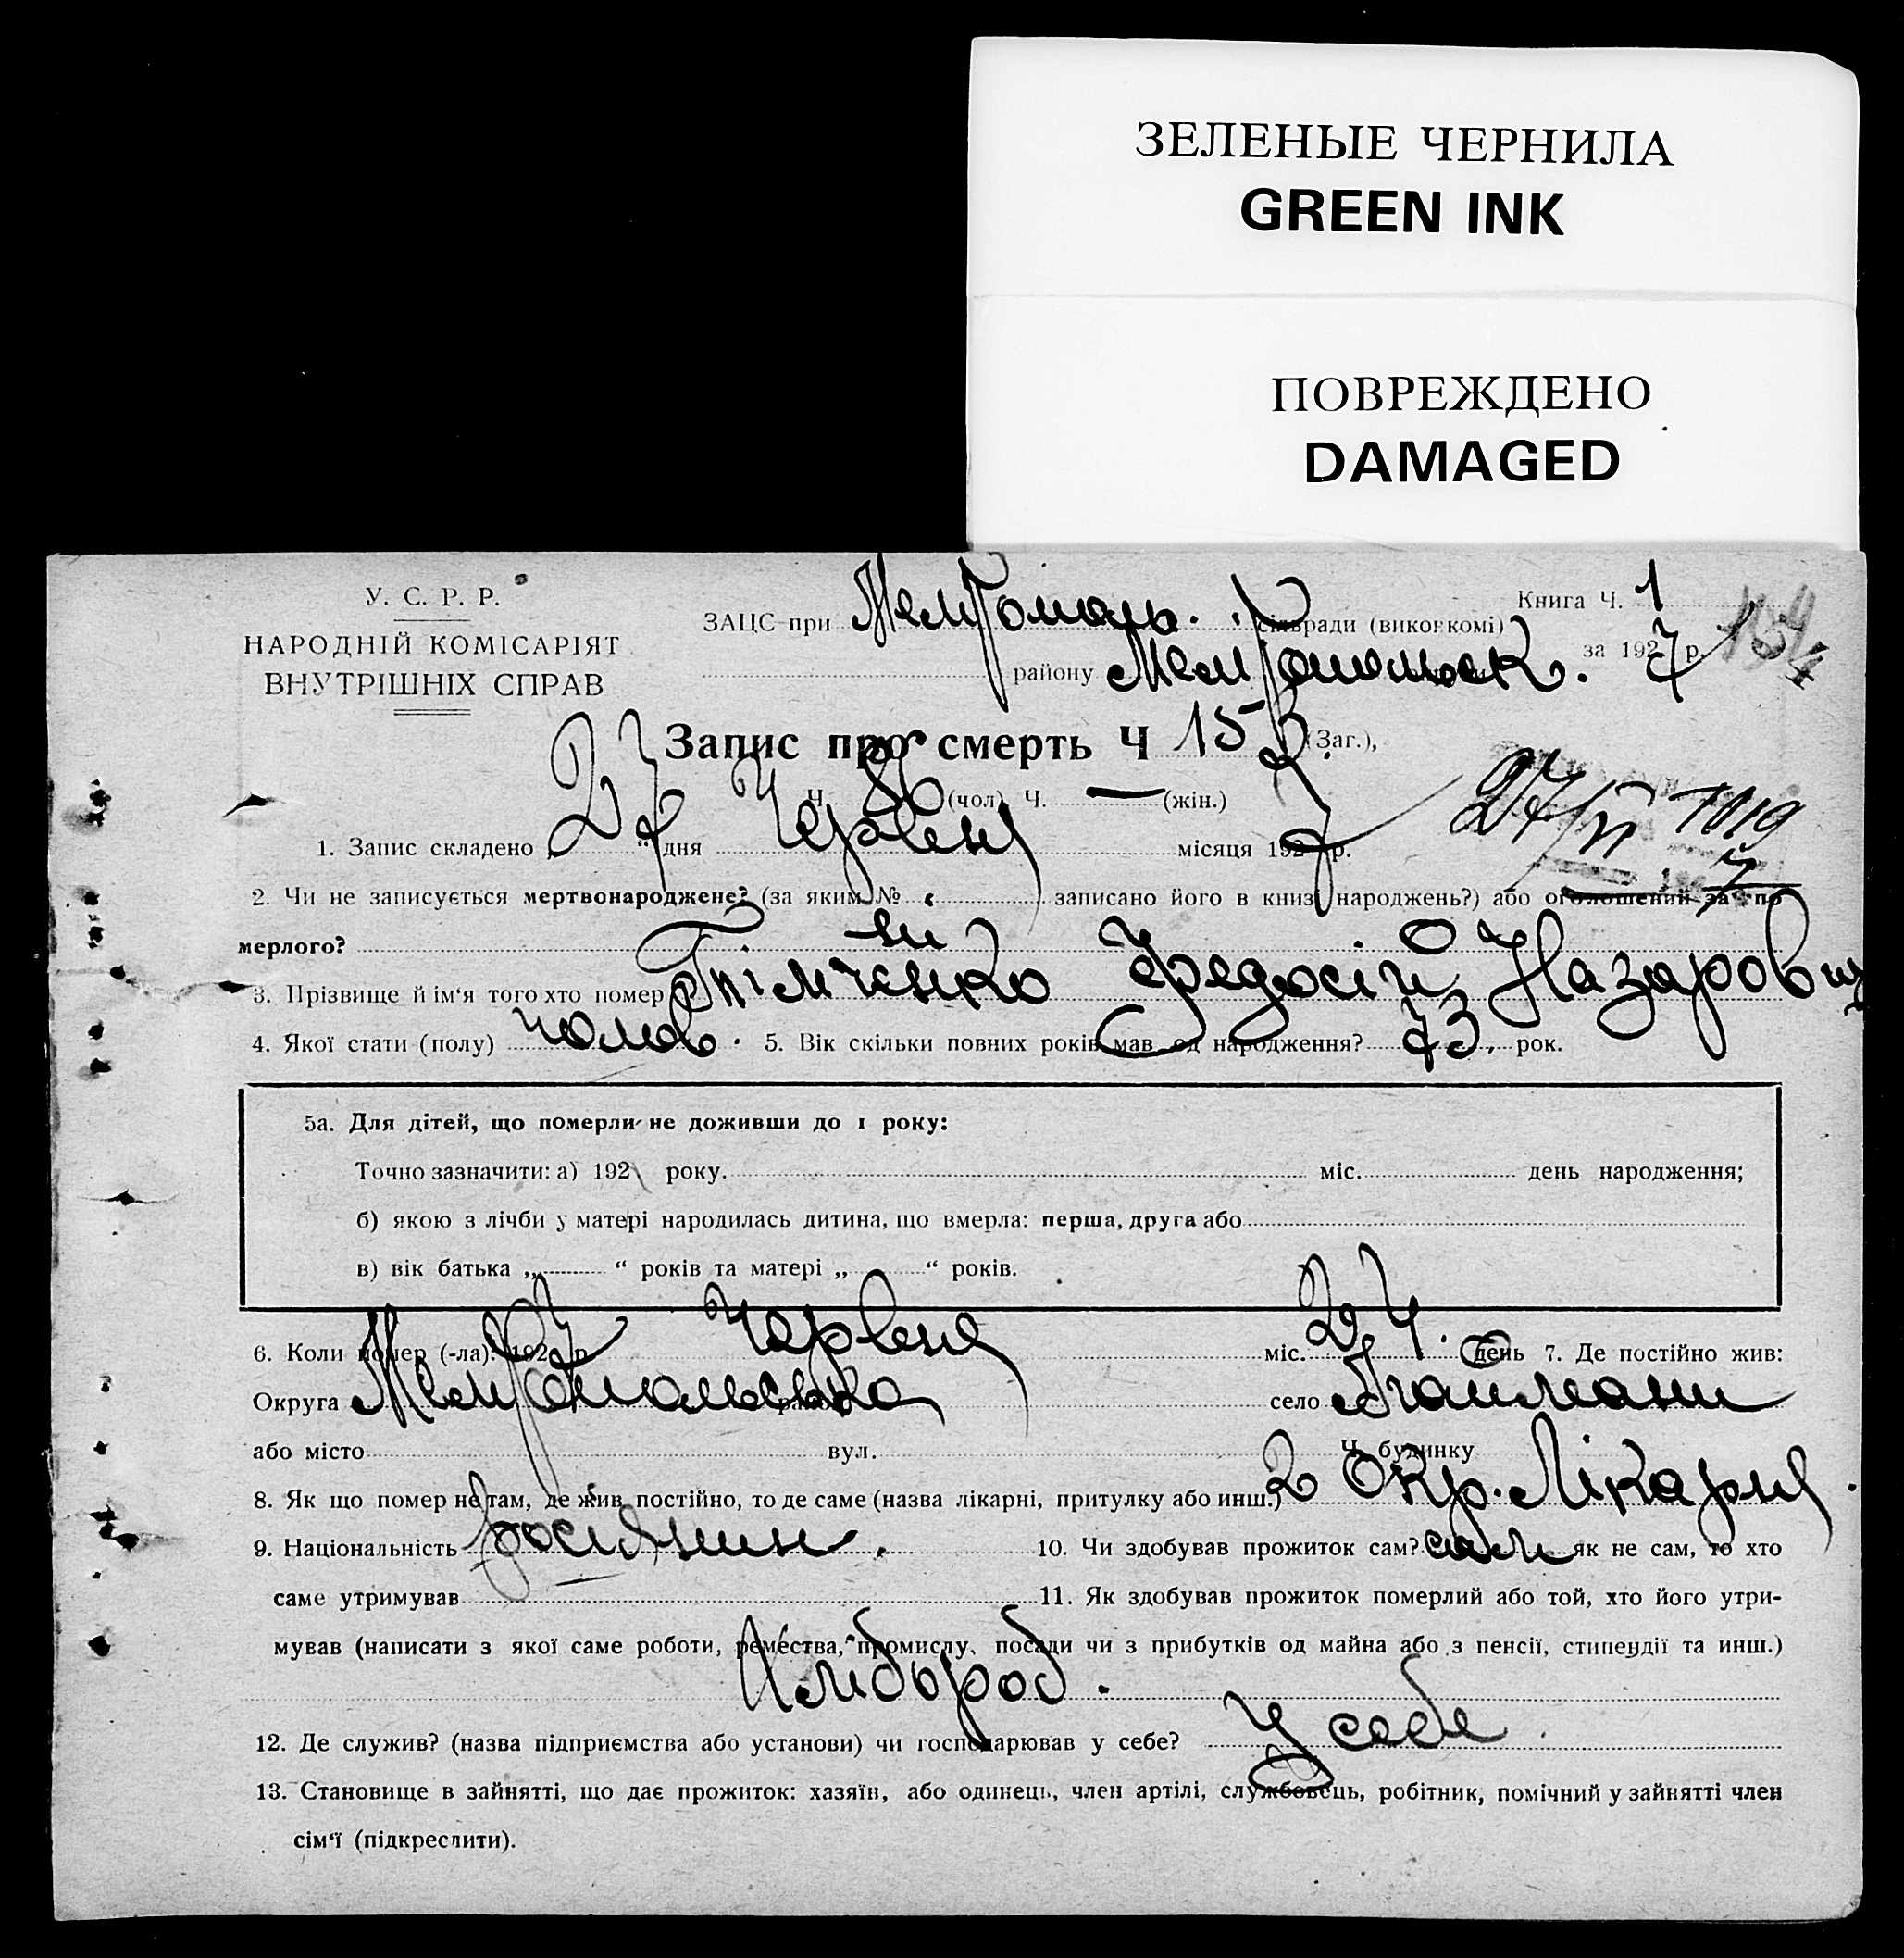 ЗЕЛЕНЫЕ ЧЕРНИЛА
GREEN INK
ПОВРЕЖДЕНО
DAMAGED
У. С. Р. Р.
НАРОДНІЙ КОМІСАРІЯТ
ВНУТРІШНІХ СПРАВ
ЗАЦС при сільради (виконкомі)
Книга Ч. 1
району за 1927 р.
Запис про смерть Ч 15 (Заг.),
Ч. (чол) Ч. — (жін.)
1. Запис складено „27“ дня Червня місяця 1927 р.
2. Чи не записується мертвонароджене? (за яким № записано його в книзі народжень?) або оголошений за по
мерлого?
3. Прізвище й ім‘я того хто помер Федосій Назарович
4. Якої стати (полу) чолов. 5. Вік скільки повних років мав од народження? 73. рок.
5а. Для дітей, що померли не доживши до 1 року:
Точно зазначити: а) 192 року. міс. день народження;
б) якою з лічби у матері народилась дитина, що вмерла: перша, друга або
в) вік батька „ “ років та матері „ “ років.
6. Коли помер (-ла): 1927 р. Червня міс. 24. день 7. Де постійно жив:
Округа Мелітопольська район село
або місто вул. Ч. будинку
8. Як що помер не там, де жив постійно, то де саме (назва лікарні, притулку або инш.) 2 Окр. Лікарня.
9. Національність росіянин. 10. Чи здобував прожиток сам? сам як не сам, то хто
саме утримував 11. Як здобував прожиток померлий або той, хто його утри-
мував (написати з якої саме роботи, ремества, промислу, посади чи з прибутків од майна або з пенсії, стипендії та инш.)
Хлібороб.
12. Де служив? (назва підприємства або установи) чи господарював у себе? У себе
13. Становище в зайнятті, що дає прожиток: хазяїн, або одинець, член артілі, службовець, робітник, помічний у зайнятті член
сім‘ї (підкреслити).